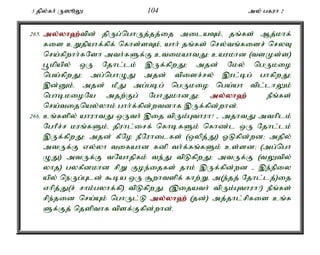 3 தில்கர் ருஸூலு 104 அல் பகரா 2
265. அல்லாஹ்வின் திருப்பொருத்தத்தை அடையவும், தங்கள் ஆத்மாக்
களை உறுதியாக்கிக் கொள்ளவும், யார் தங்கள் செல்வங்களைச் செலவு
செய்கிறார்களோ அவர்களுக்கு உவமையாவது: உயரமான (வளமுள்ள)
பூமியில் ஒரு தோட்டம் இருக்கிறது; அதன் மேல் பெருமழை
பெய்கிறது; அப்பொழுது அதன் விளைச்சல் இரட்டிப் பாகிறது;
இன்னும், அதன் மீது அப்படிப் பெருமழை பெய்யா விட்டாலும்
பொடிமழையே அதற்குப் போதுமானது; அல்லாஹ் நீங்கள்
செய்வதையெல்லாம் பார்க்கின்றவனாக இருக்கின்றான்.
266. உங்களில் யாராவது ஒருவர் இதை விரும்புவாரா? - அதாவது அவரிடம்
பேரீச்ச மரங்களும், திராட்சைக் கொடிகளும் கொண்ட ஒரு தோட்டம்
இருக்கிறது; அதன் கீழே நீரோடைகள் (ஒலித்து) ஓடுகின்றன; அதில்
அவருக்கு எல்லா வகையான கனி வர்க்கங்களும் உள்ளன; (அப்பொ
ழுது) அவருக்கு வயோதிகம் வந்து விடுகிறது; அவருக்கு (வலுவில்
லாத) பலகீனமான சிறு குழந்தைகள் தாம் இருக்கின்றன - இந்நிலை
யில் நெருப்புடன் கூடிய ஒரு சூறாவளிக் காற்று, அ(ந்தத் தோட்டத்)தை
எரித்து(ச் சாம்பலாக்கி) விடுகிறது; (இதையவர் விரும்புவாரா?) நீங்கள்
சிந்தனை செய்யும் பொருட்டு அல்லாஹ் (தன்) அத்தாட்சிகளை உங்க
ளுக்குத் தெளிவாக விளக்குகின்றான்.